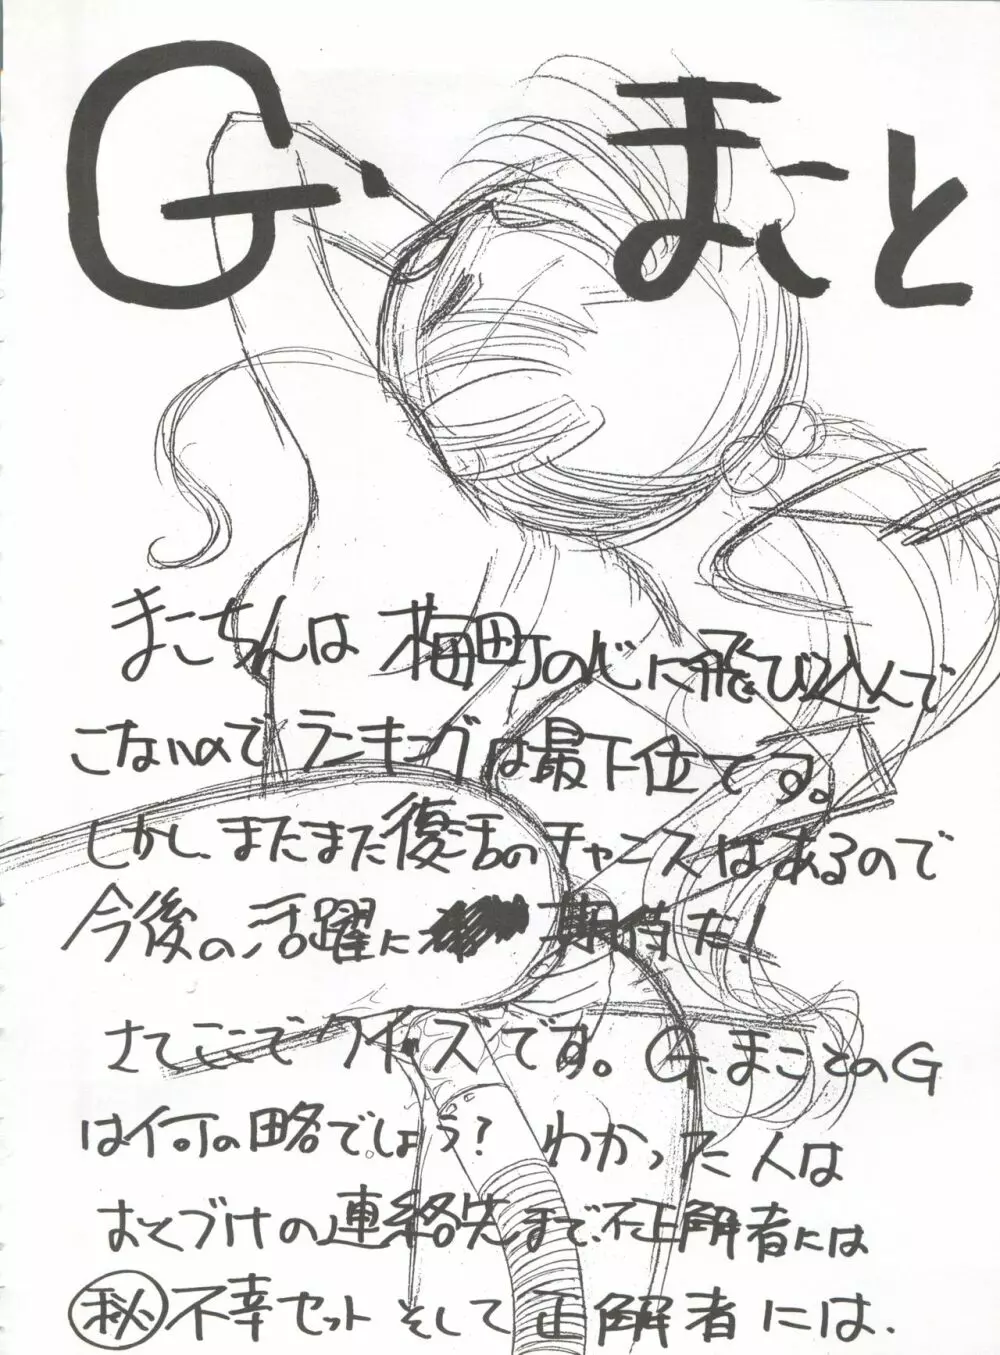 G・まこと
まこちんは梅町の心に飛び込んで
こないのでランキングは最下位です。
しかし、まだまだ復活のチャンスはあるので
今後の活躍に期待だ!
さてここでクイズです。G.まことのG
は何の略でしょう?わかった人は
おくづけの連絡先まで、不正解者には
㊙不幸セットそして正解者には、